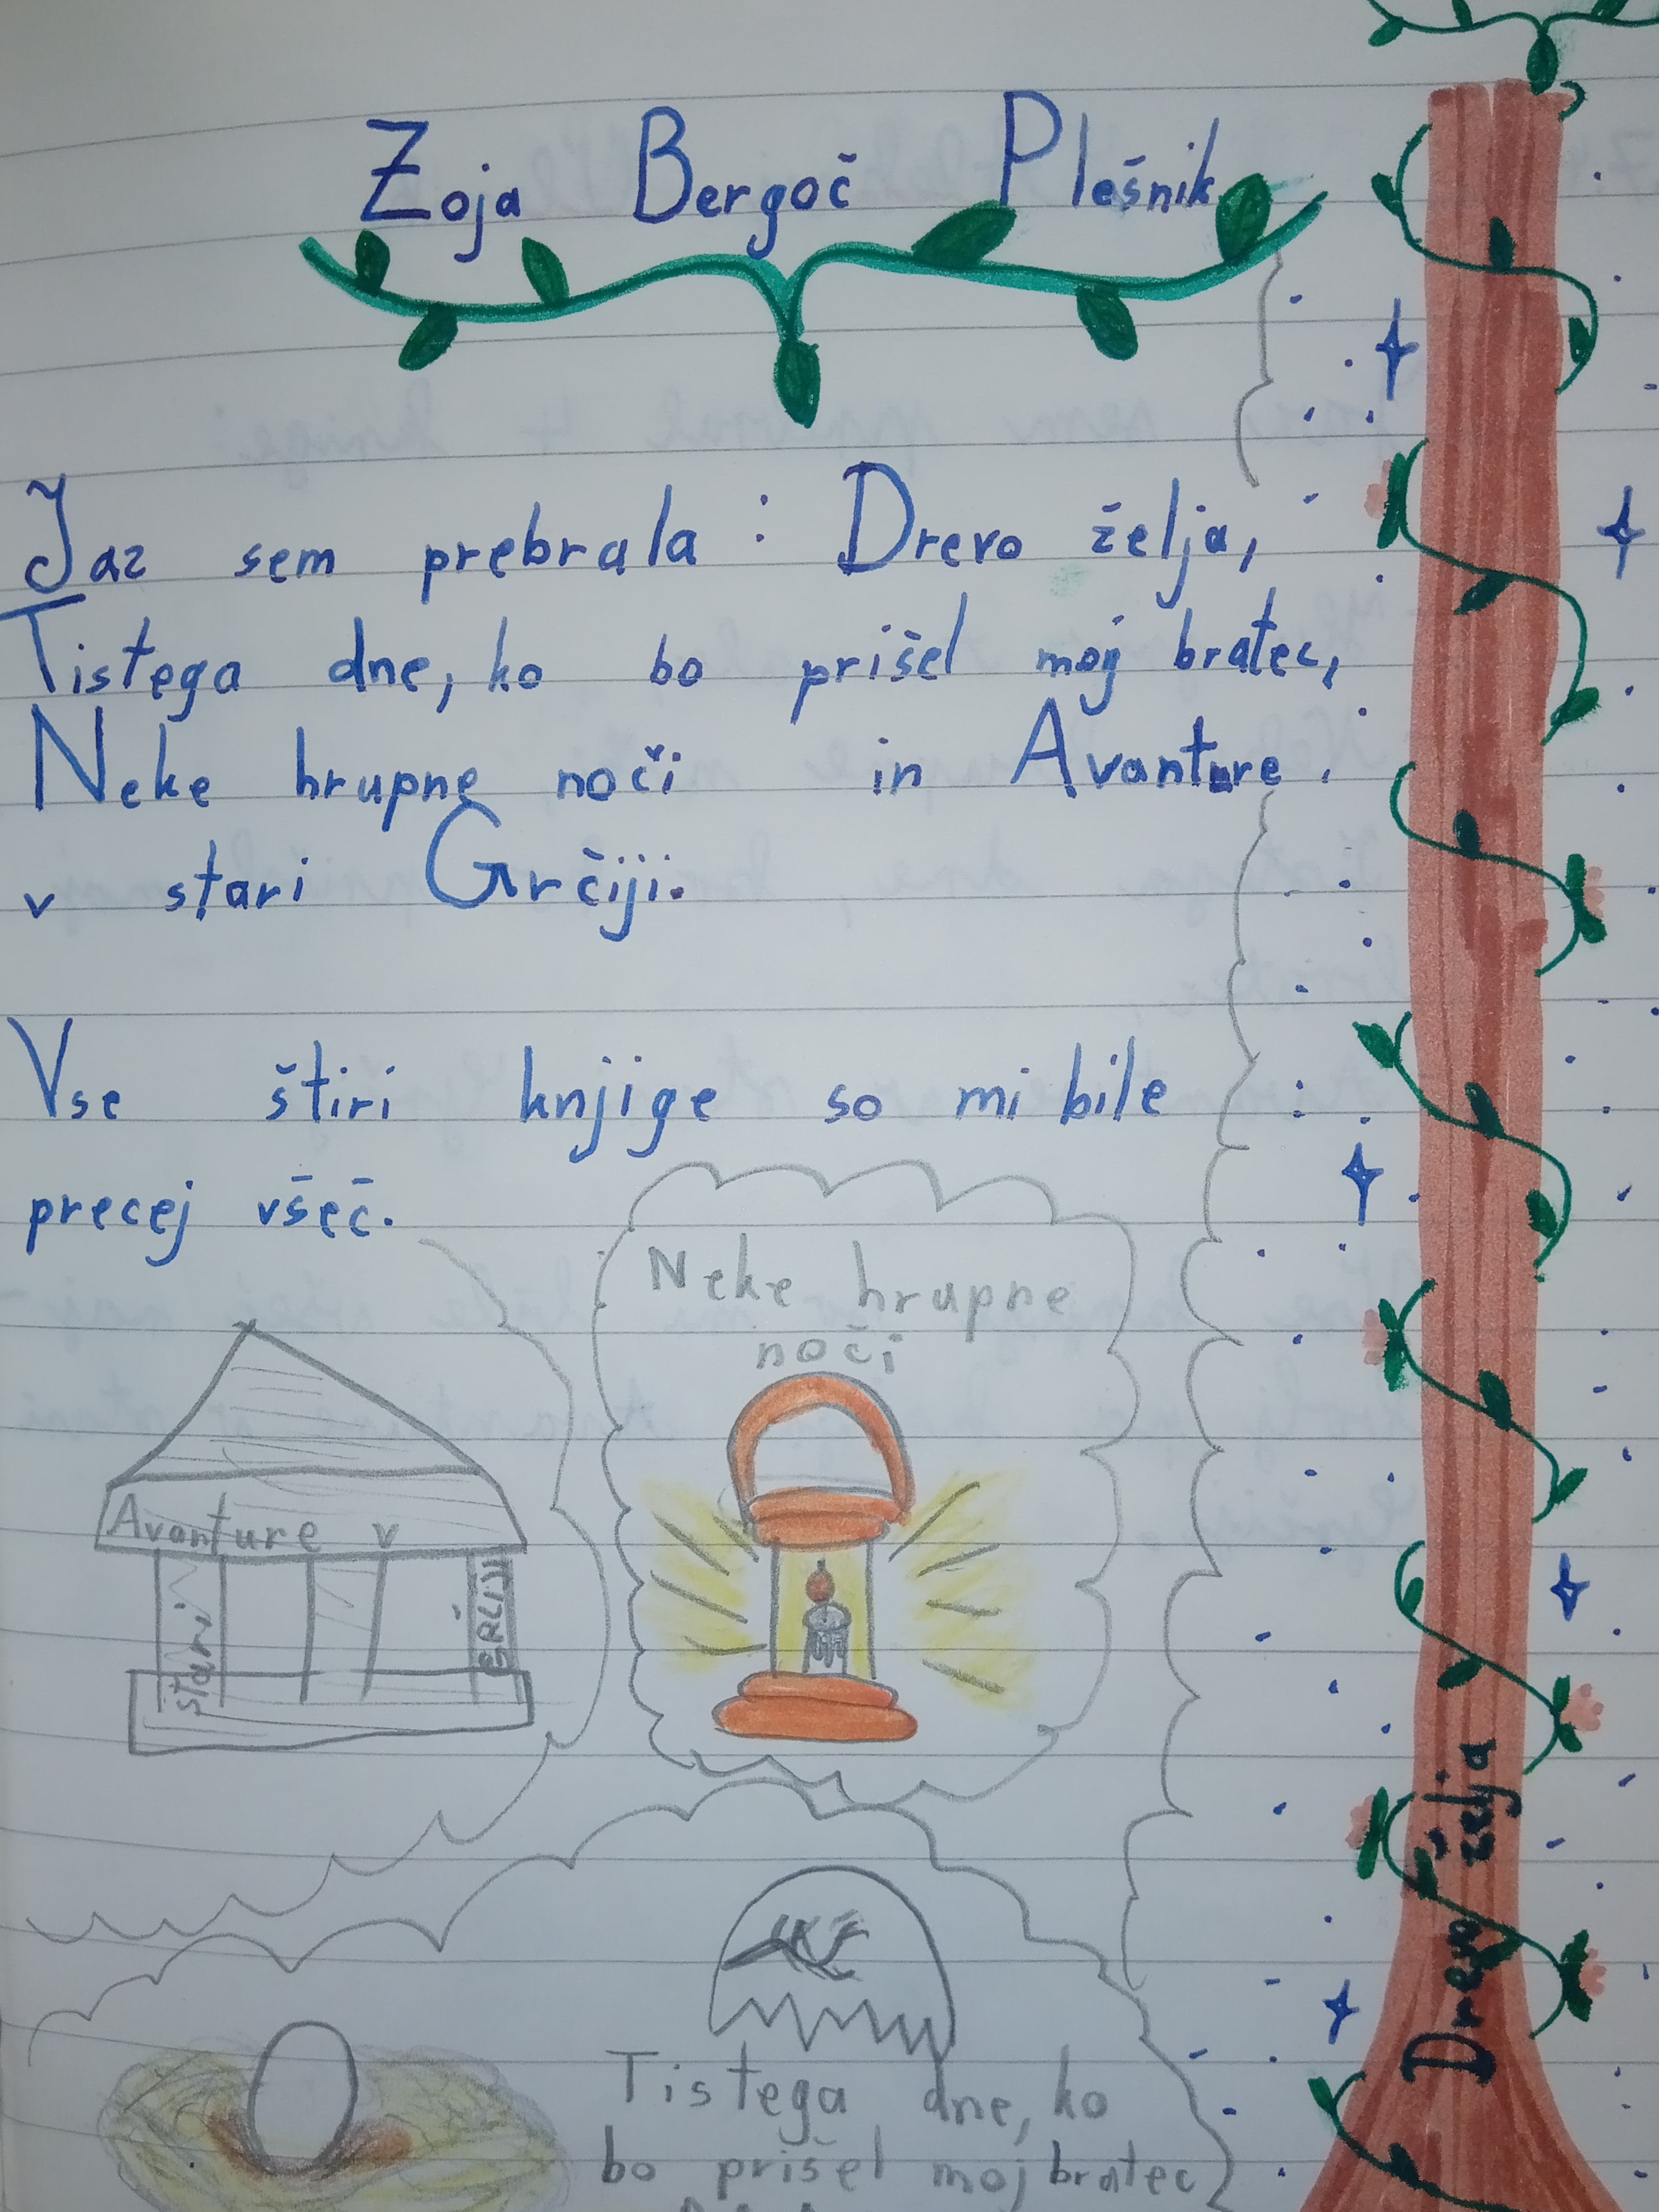 Zoja Bergoč Plešnik
Jaz sem prebrala: Drevo želja,
Tistega dne, ko bo prišel moj bratec,
Neke hrupne noči in Avanture
v stari Grčiji.
Vse štiri knjige so mi bile
precej všeč.
Neke hrupne
noči
Avanture v
stari
GRČIJI
Tistega dne, ko
bo prišel moj bratec
Drevo želja